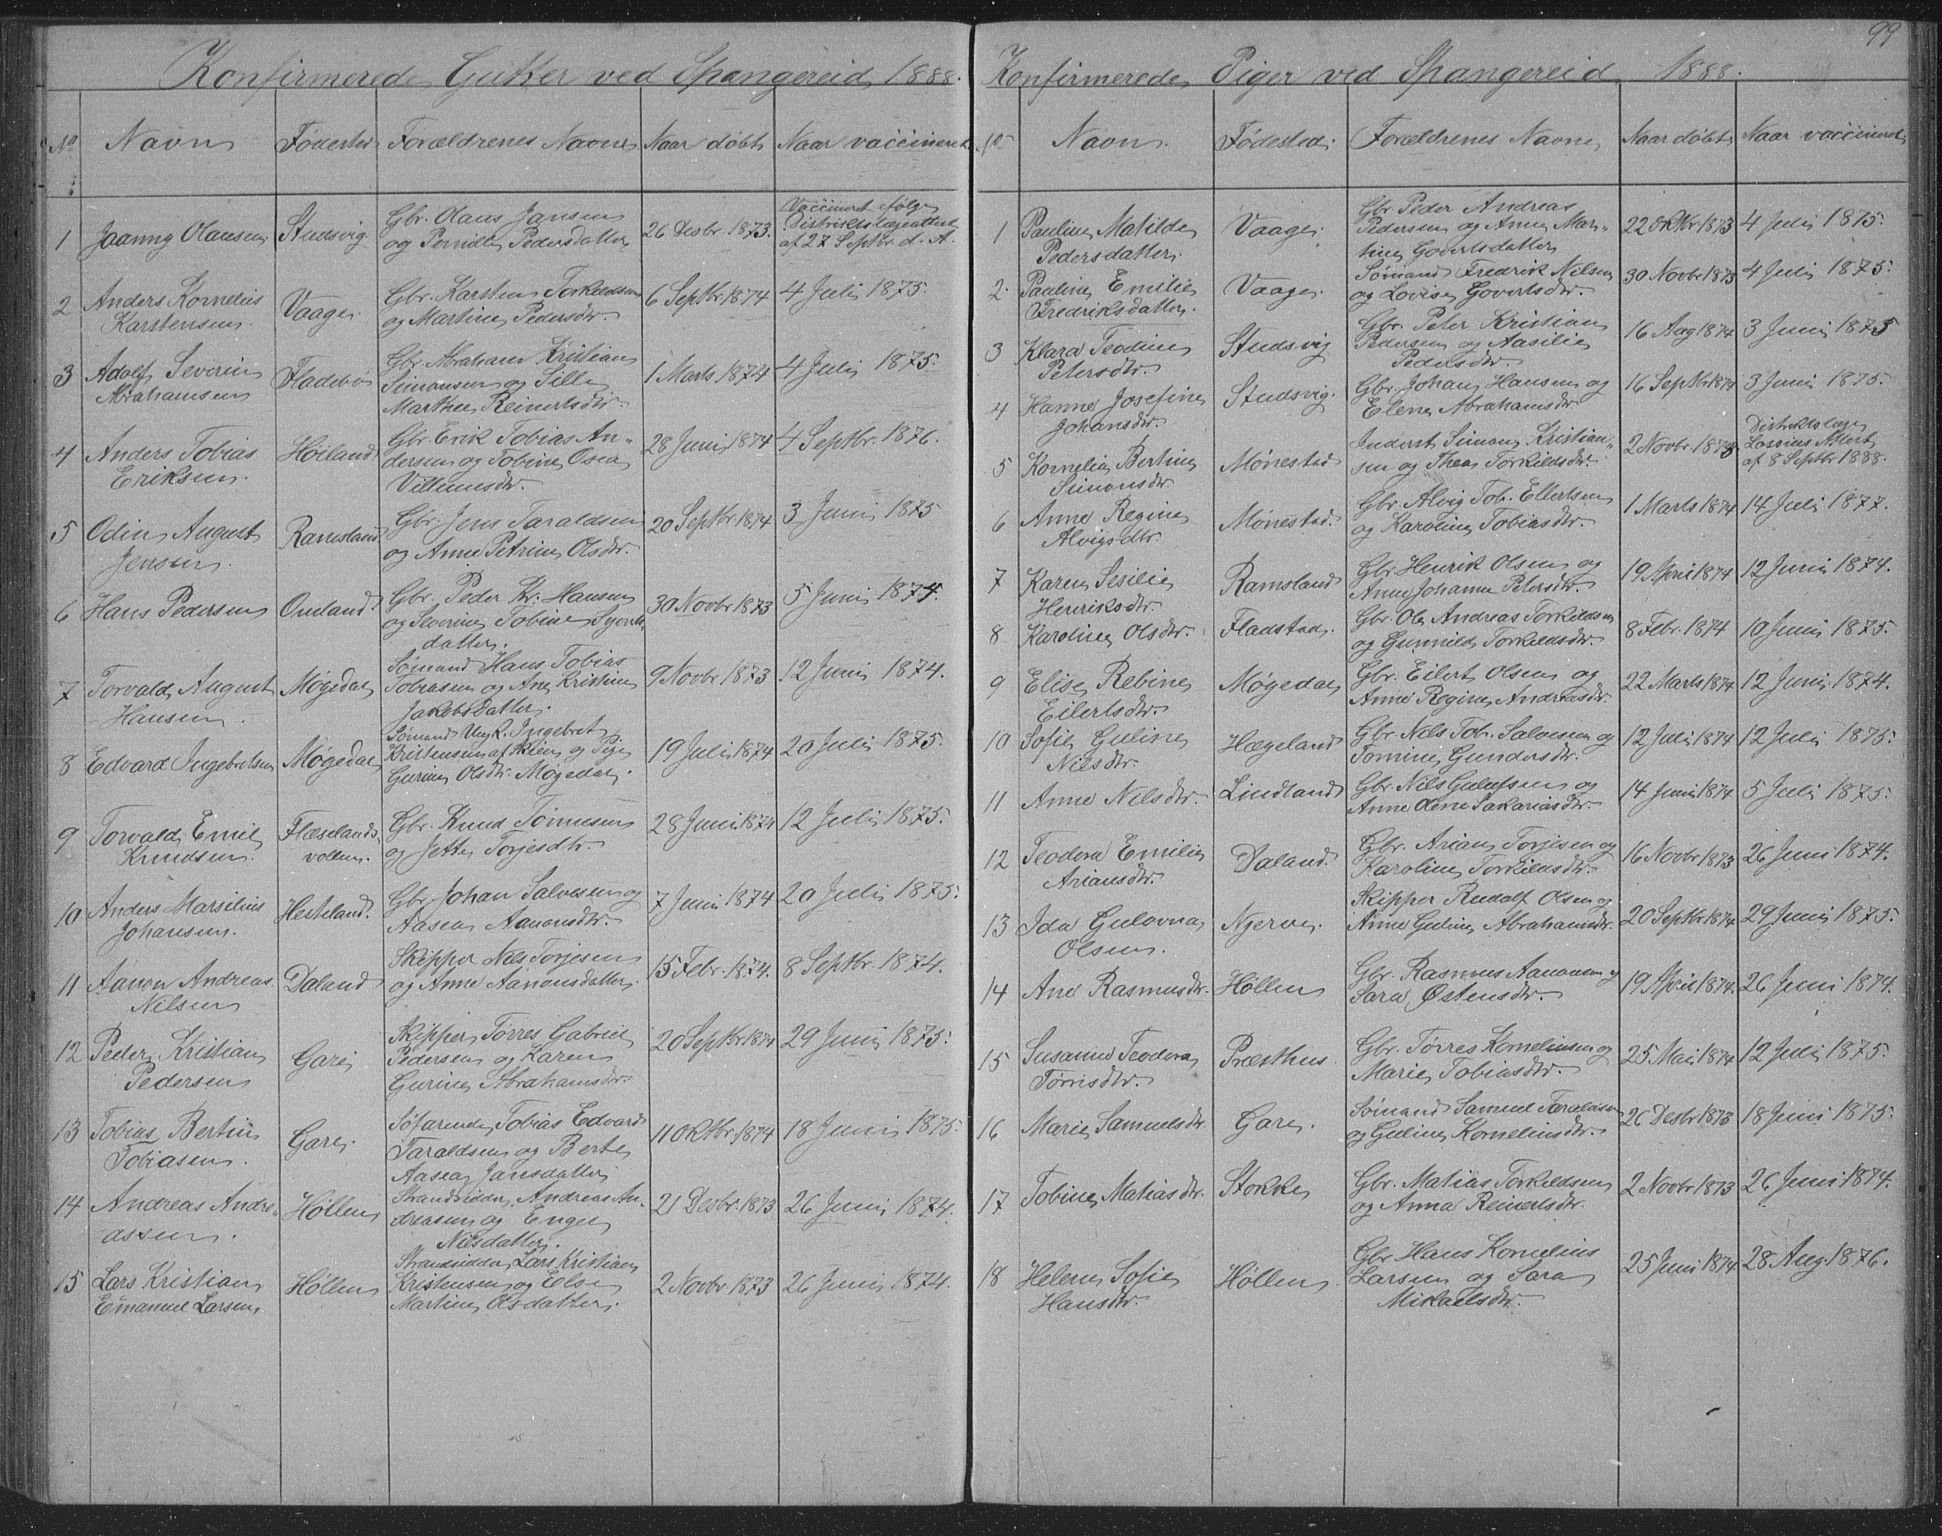 99
Konfirmerede Gutter ved Spangereid 1888.
No Navn Fødested Forældrenes Navne Naar døbt Naar vaccineret
1 Jaanny Olausen Studsvig Gbr. Olaus Jansen 26 Desbr. 1873. Vaccineret ifølge
og Pernille Pedersdatter Distriktslægeattest
af 27 Septbr d. A.
2 Anders Kornelius Vaage. Gbr. Karsten Torkildsen 6 Septbr 1874 4 Juli 1875.
Karstensen. og Martine Pedersdtr.
3 Adolf Severin Fladebø Gbr. Abraham Kristian 1 Marts 1874 4 Juli 1875.
Abrahamsen Simonsen og Sille
Marthea Reinertsdtr.
4 Anders Tobias Høiland Gbr. Erik Tobias An- 28 Juni 1874 4 Septbr. 1876.
Eriksen. dersen og Tobine Osea
Villumsdtr.
5 Odin August Ramsland Gbr. Jens Taraldsen 20 Septbr 1874 3 Juni 1875
Jensen. og Anne Petrine Olsdtr.
6 Hans Pedersen Omland. Gbr. Peder Kr. Hansen 30 Novbr 1873 5 Juni 1874.
og Severine Tobine Syverts
datter.
7 Torvald August Møgedal Sømand Hans Tobias 9 Novbr 1873 12 Juni 1874.
Hansen. Tobiasen og Ane Kristine
Jakobsdatter.
8 Edvard Ingebretsen Møgedal Sømand Ung. Ingebret 19 Juli 1874 20 Juli 1875.
Kristensen af og Pige
Gurine Olsdtr. Møgedal.
9 Torvald Emil Flæselands- Gbr. Knud Tønnesen 28 Juni 1874 12 Juli 1875.
Knudsen. vollen. og Jette Torjesdtr.
10 Anders Marsilius Hesteland. Gbr. Johan Salvesen og 7 Juni 1874 20 Juli 1875.
Johansen. Aasea Aanonsdtr
11 Aanon Andreas Daland Skipper Nils Torjesen 15 Febr. 1874. 8 Septbr. 1874.
Nilsen og Anne Aanonsdatter
12 Peder Kristian Gare Skipper Tørres Gabriel 20 Septbr 1874 29 Juni 1875.
Pedersen Pedersen og Karen
Gurine Abrahamsdtr.
13 Tobias Bertin Gare. Søfarende Tobias Edvard 11 Oktbr. 1874 18 Juni 1875.
Tobiasen. Taraldsen og Berte
Aasea Jansdatter
14 Andreas Andre- Høllen Strandsidder Andreas An- 21 Desbr. 1873 26 Juni 1874.
assen. dreasen og Engel
Nilsdatter.
15 Lars Kristian Høllen Strandsidder Lars Kristian 2 Novbr 1873 26 Juni 1874.
Emanuel Larsen Kristensen og Else
Martine Olsdatter.
Konfirmerede Piger ved Spangereid 1888.
No Navn. Fødested. Forældrenes Navne Naar døbt Naar vaccineret
1 Pauline Matilde Vaage. Gbr. Peder Andreas 22 Oktbr 1873 4 Juli 1875.
Pedersdatter. Pedersen og Anne Mar-
tine Govertsdatter
2. Pauline Emilie Vaage. Sømand Fredrik Nilsen 30 Novbr 1873 4 Juli 1875.
Fredriksdatter. og Lovise Govertsdtr.
3 Klara Teodine Studsvig Gbr. Peter Kristian 16 Aug 1874 3 Juni 1875
Petersdtr. Pedersen og Aasilie
Pedersdtr.
4 Hanne Josefine Studsvig. Gbr. Johan Hansen og 16 Septbr 1874 3 Juni 1875.
Johansdtr. Elene Abrahamsdtr
5 Kornelia Bertine Mønestad Inderst Simon Kristian- 2 Novbr. 1873 Distriktslæge
Simonsdtr sen og Thea Torkildsdtr. Attest
af 8 Septbr 1888.
6 Anne Regine Mønestad. Gbr. Alvig Tob. Ellertsen 1 Marts 1874 14 Juli 1877.
Alvigsdtr. og Karoline Tobiasdtr.
7 Karen Sesilie Ramsland Gbr. Henrik Olsen og 19 April 1874 12 Juni 1874.
Henriksdtr. Anne Johanne Petersdtr.
8 Karoline Olsdtr. Fladstad. Gbr. Ole Andreas Torkildsen 8 Febr. 1874 10 Juni 1875.
og Gunnild Torkildsdtr.
9 Elise Rebine Møgedal Gbr. Eilert Olsen og 22 Marts 1874 12 Juni 1874.
Eilertsdtr. Anne Regine Andreasdtr.
10 Sofie Guline Hægeland Gbr. Nils Tob. Salvesen og 12 Juli 1874 12 Juli 1875.
Nilsdtr. Tomine Gundersdtr.
11 Anne Nilsdtr. Lindland Gbr. Nils Gulufsen og 14 Juni 1874 5 Juli 1875.
Anne Olene Sakariasdtr.
12 Teodora Emilie Daland. Gbr. Arian Torjesen og 16 Novbr 1873 26 Juni 1874.
Ariansdtr. Karoline Torkildsdtr.
13 Ida Gulovna Njerve. Skipper Rudolf Olsen og 20 Septbr 1874 29 Juni 1875.
Olsen. Anne Guline Abrahamsdtr.
14 Ane Rasmusdtr. Höllen Gbr. Rasmus Aanonsen og 19 April 1874. 26 Juni 1874.
Sara Østensdtr.
15 Susanne Teodora Præsthus. Gbr. Tørres Korneliusen og 25 Mai 1874 12 Juli 1875.
Tørrisdtr. Marie Tobiasdtr.
16 Marie Samuelsdtr Gare. Sømand Samuel Taraldsen 26 Desbr 1873 18 Juni 1875.
og Guline Korneliusdtr.
17 Tobine Matiasdtr. Stokke Gbr. Matias Torkildsen 2 Novbr 1873 26 Juni 1874.
og Anna Reinertsdtr.
18 Helene Sofie Höllen Gbr. Hans Kornelius 25 Juni 1874 28 Aug. 1876.
Hansdtr. Larsen og Sara
Mikaelsdtr.